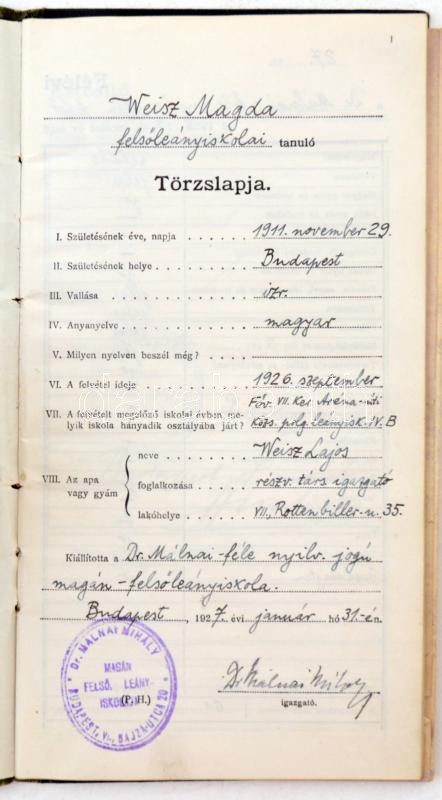 1
Weisz Magda
felsőleányiskolai tanuló
Törzslapja.
I. Születésének éve, napja . . . . . . 1911. november 29.
II. Születésének helye . . . . . . . Budapest
III. Vallása . . . . . . . . . . . izr.
IV. Anyanyelve . . . . . . . . . . magyar
V. Milyen nyelven beszél még? . . . . .
VI. A felvétel ideje . . . . . . . . 1926. szeptember
VII. A felvételt megelőző iskolai évben me- Főv. VII. ker. Aréna-úti
lyik iskola hányadik osztályába járt? Közs. polg. leányisk. IV. B
VIII. Az apa vagy gyám
neve . . . . . Weisz Lajos
foglalkozása . . . részv. társ. igazgató
lakóhelye . . . . VII., Rottenbiller-u. 35.
Kiállította a Dr. Málnai-féle nyilv. jogú
magán-felsőleányiskola.
Budapest, 1927. évi január hó 31-én.
Dr. Málnai Mihály
(P. H.) igazgató.
DR. MÁLNAI MIHÁLY
MAGÁN
FELSŐ LEÁNY-
ISKOLÁJA
BUDAPEST, VI., BAJZA-UTCA 20